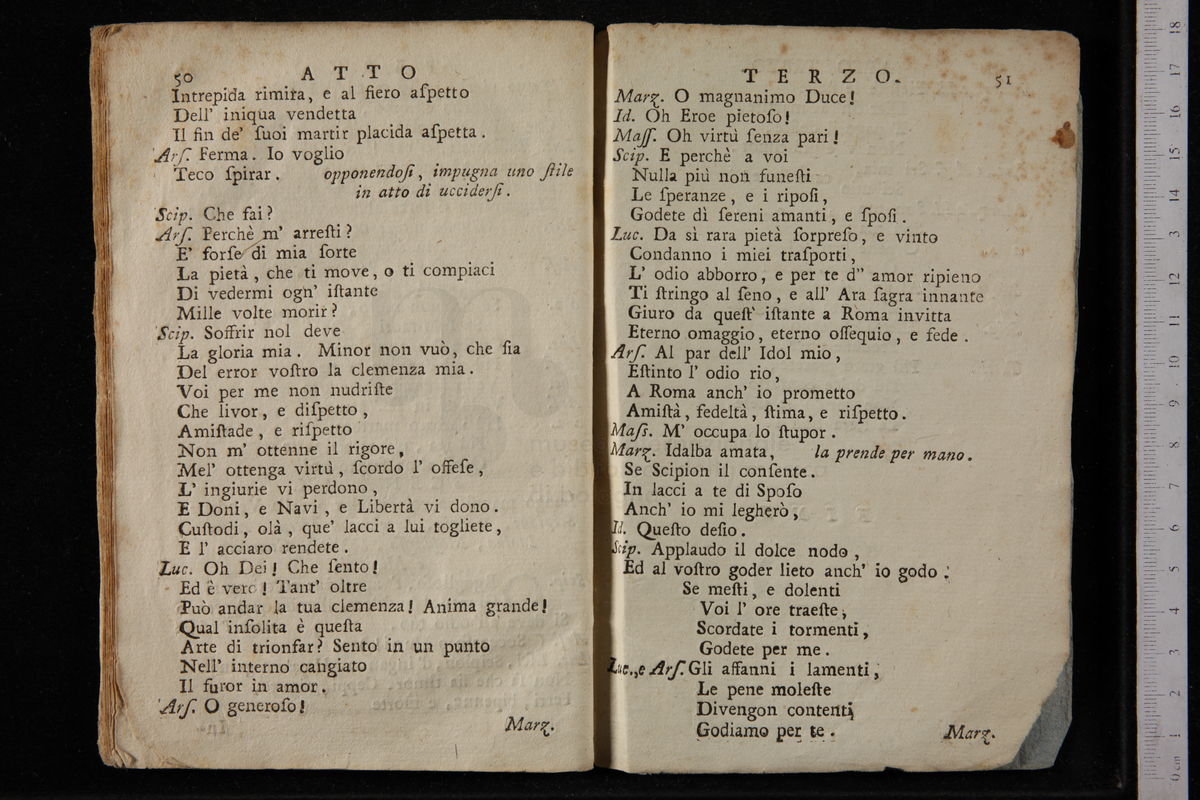 50 ATTO
Intrepida rimira, e al fiero aſpetto
Dell' iniqua vendetta
Il fin de' ſuoi martir placida aſpetta.
Arſ. Ferma. Io voglio
Teco ſpirar. opponendoſi, impugna uno ſtile
in atto di ucciderſi.
Scip. Che fai?
Arſ. Perchè m' arreſti?
E' forſe di mia ſorte
La pietà, che tì move, o ti compiaci
Di vedermi ogn' iſtante
Mille volte morir?
Scip. Soffrir nol deve
La gloria mia. Minor non vuò, che ſia
Del error voſtro la clemenza mia.
Voi per me non nudriſte
Che livor, e diſpetto,
Amiſtade, e riſpetto
Non m' ottenne il rigore,
Mel' ottenga virtù, ſcordo l' offeſe,
L' ingiurie vi perdono,
E Doni, e Navi, e Libertà vi dono.
Cuſtodi, olà, que' lacci a lui togliete,
E l' acciaro rendete.
Luc. Oh Dei! Che ſento!
Ed è vero! Tant' oltre
Può andar la tua clemenza! Anima grande!
Qual inſolita è queſta
Arte di trionfar? Sento in un punto
Nell' interno cangiato
Il furor in amor.
Arſ. O generoſo!
Marz.
TERZO. 51
Marz. O magnanimo Duce!
Id. Oh Eroe pietoſo!
Maſſ. Oh virtù ſenza pari!
Scip. E perchè a voi
Nulla più non funeſti
Le ſperanze, e i ripoſi,
Godete dì ſereni amanti, e ſpoſi.
Luc. Da sì rara pietà ſorpreſo, e vinto
Condanno i miei traſporti,
L' odio abborro, e per te d'' amor ripieno
Ti ſtringo al ſeno, e all' Ara ſagra innante
Giuro da queſt' iſtante a Roma invitta
Eterno omaggio, eterno oſſequio, e fede.
Arſ. Al par dell' Idol mio,
Eſtinto l' odio rio,
A Roma anch' io prometto
Amiſtà, fedeltà, ſtima, e riſpetto.
Maſs. M' occupa lo ſtupor.
Marz. Idalba amata, la prende per mano.
Se Scipion il conſente.
In lacci a te di Spoſo
Anch' io mi legherò,
Id. Queſto deſio.
Scip. Applaudo il dolce nodo,
Ed al voſtro goder lieto anch' io godo.
Se meſti, e dolenti
Voi l' ore traeſte,
Scordate i tormenti,
Godete per me.
Luc., e Arſ. Gli affanni i lamenti,
Le pene moleſte
Divengon contenti,
Godiamo per te.
Marz.